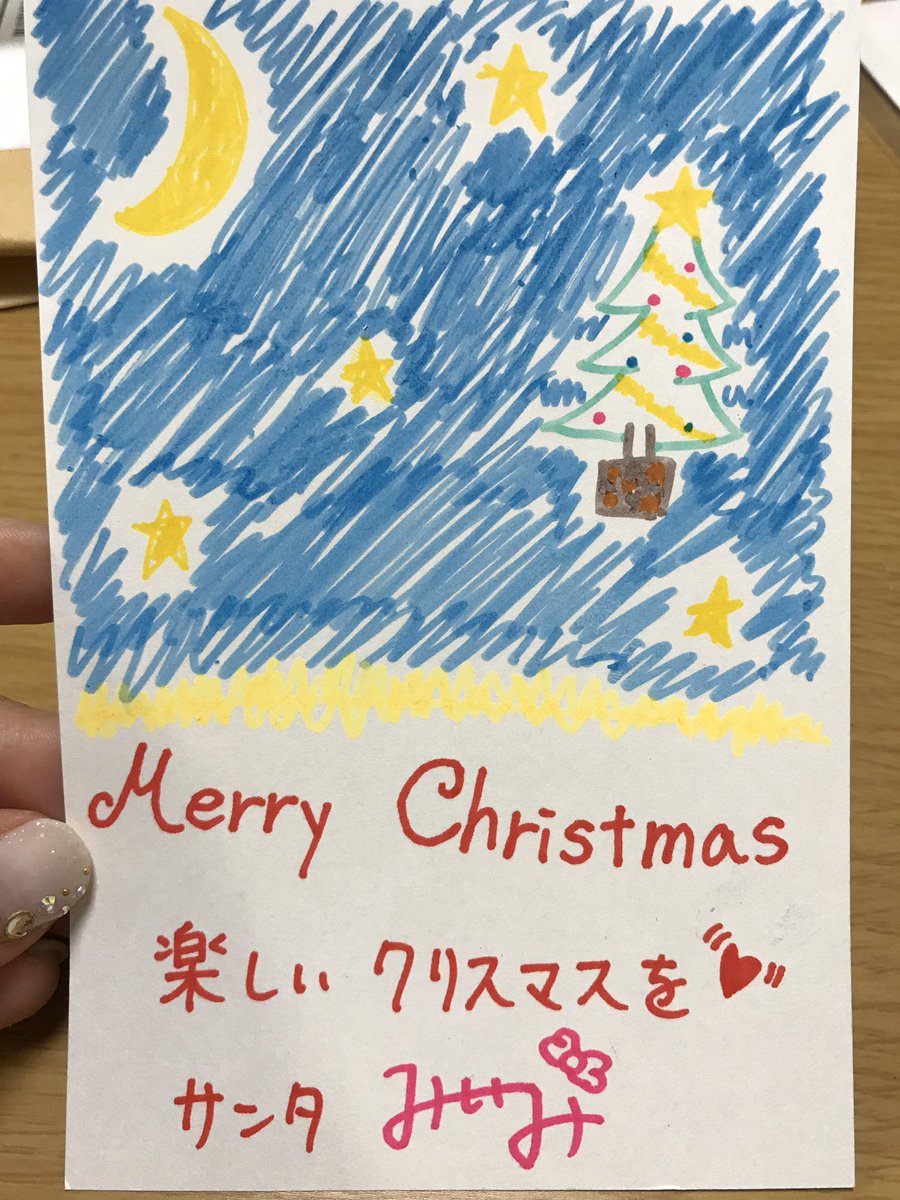 Merry Christmas
楽しいクリスマスを
サンタ みぃみ